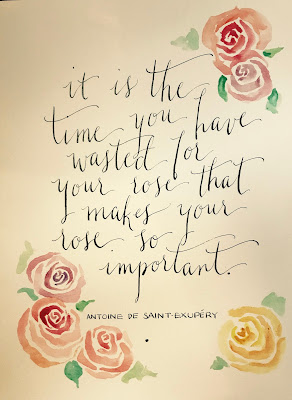 it is the
time you have
wasted for
your rose that
makes your
rose so
important.
ANTOINE DE SAINT-EXUPÉRY